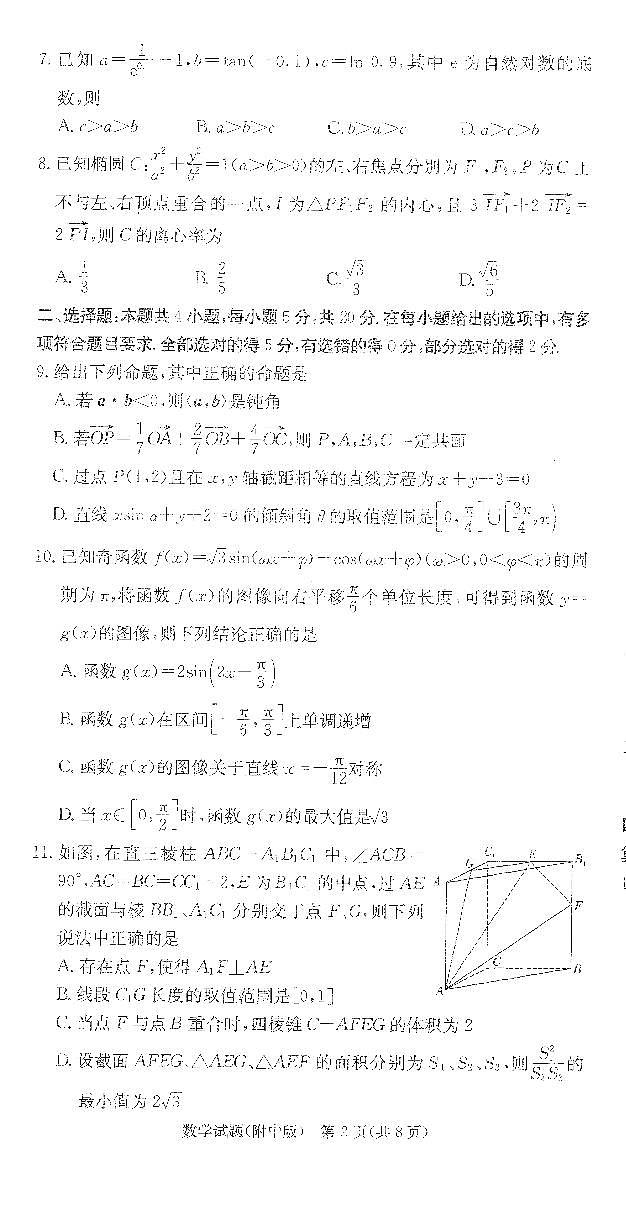 7. 已知 a=1/e^…-1,b=tan(-0.1),c=ln 0.9,其中 e 为自然对数的底
数,则
A. c>a>b B. a>b>c C. b>a>c D. a>c>b
8. 已知椭圆 C:x²/a²+y²/b²=1(a>b>0)的左、右焦点分别为 F₁,F₂,P 为 C 上
不与左、右顶点重合的一点,I 为△PF₁F₂ 的内心,且 3 IF₁+2 IF₂=
2 PI,则 C 的离心率为
A. 1/3 B. 2/5 C. √3/3 D. √6/5
二、选择题:本题共 4 小题,每小题 5 分,共 20 分.在每小题给出的选项中,有多
项符合题目要求.全部选对的得 5 分,有选错的得 0 分,部分选对的得 2 分.
9. 给出下列命题,其中正确的命题是
A. 若 a·b<0,则⟨a,b⟩是钝角
B. 若OP=1/7 OA+2/7 OB+4/7 OC,则 P,A,B,C 一定共面
C. 过点 P(1,2)且在 x,y 轴截距相等的直线方程为 x+y-3=0
D. 直线 xsin α+y-2=0 的倾斜角 θ 的取值范围是[0,π/4]∪[3π/4,π)
10. 已知奇函数 f(x)=√3sin(ωx+φ)-cos(ωx+φ)(ω>0,0<φ<π)的周
期为 π,将函数 f(x)的图像向右平移π/6个单位长度,可得到函数 y=
g(x)的图像,则下列结论正确的是
A. 函数 g(x)=2sin(2x-π/3)
B. 函数 g(x)在区间[-π/6,π/3]上单调递增
C. 函数 g(x)的图像关于直线 x=-π/12对称
D. 当 x∈[0,π/2]时,函数 g(x)的最大值是√3
11. 如图,在直三棱柱 ABC-A₁B₁C₁ 中,∠ACB=
90°,AC=BC=CC₁=2,E 为 B₁C₁ 的中点,过 AE
的截面与棱 BB₁、A₁C₁ 分别交于点 F、G,则下列
说法中正确的是
A. 存在点 F,使得 A₁F⊥AE
B. 线段 C₁G 长度的取值范围是[0,1]
C. 当点 F 与点 B 重合时,四棱锥 C-AFEG 的体积为 2
D. 设截面 AFEG、△AEG、△AEF 的面积分别为 S₁、S₂、S₃,则S₁²/S₂S₃的
最小值为 2√3
C₁ E B₁
G
A₁
F
C
B
A
数学试题(附中版) 第 2 页(共 8 页)